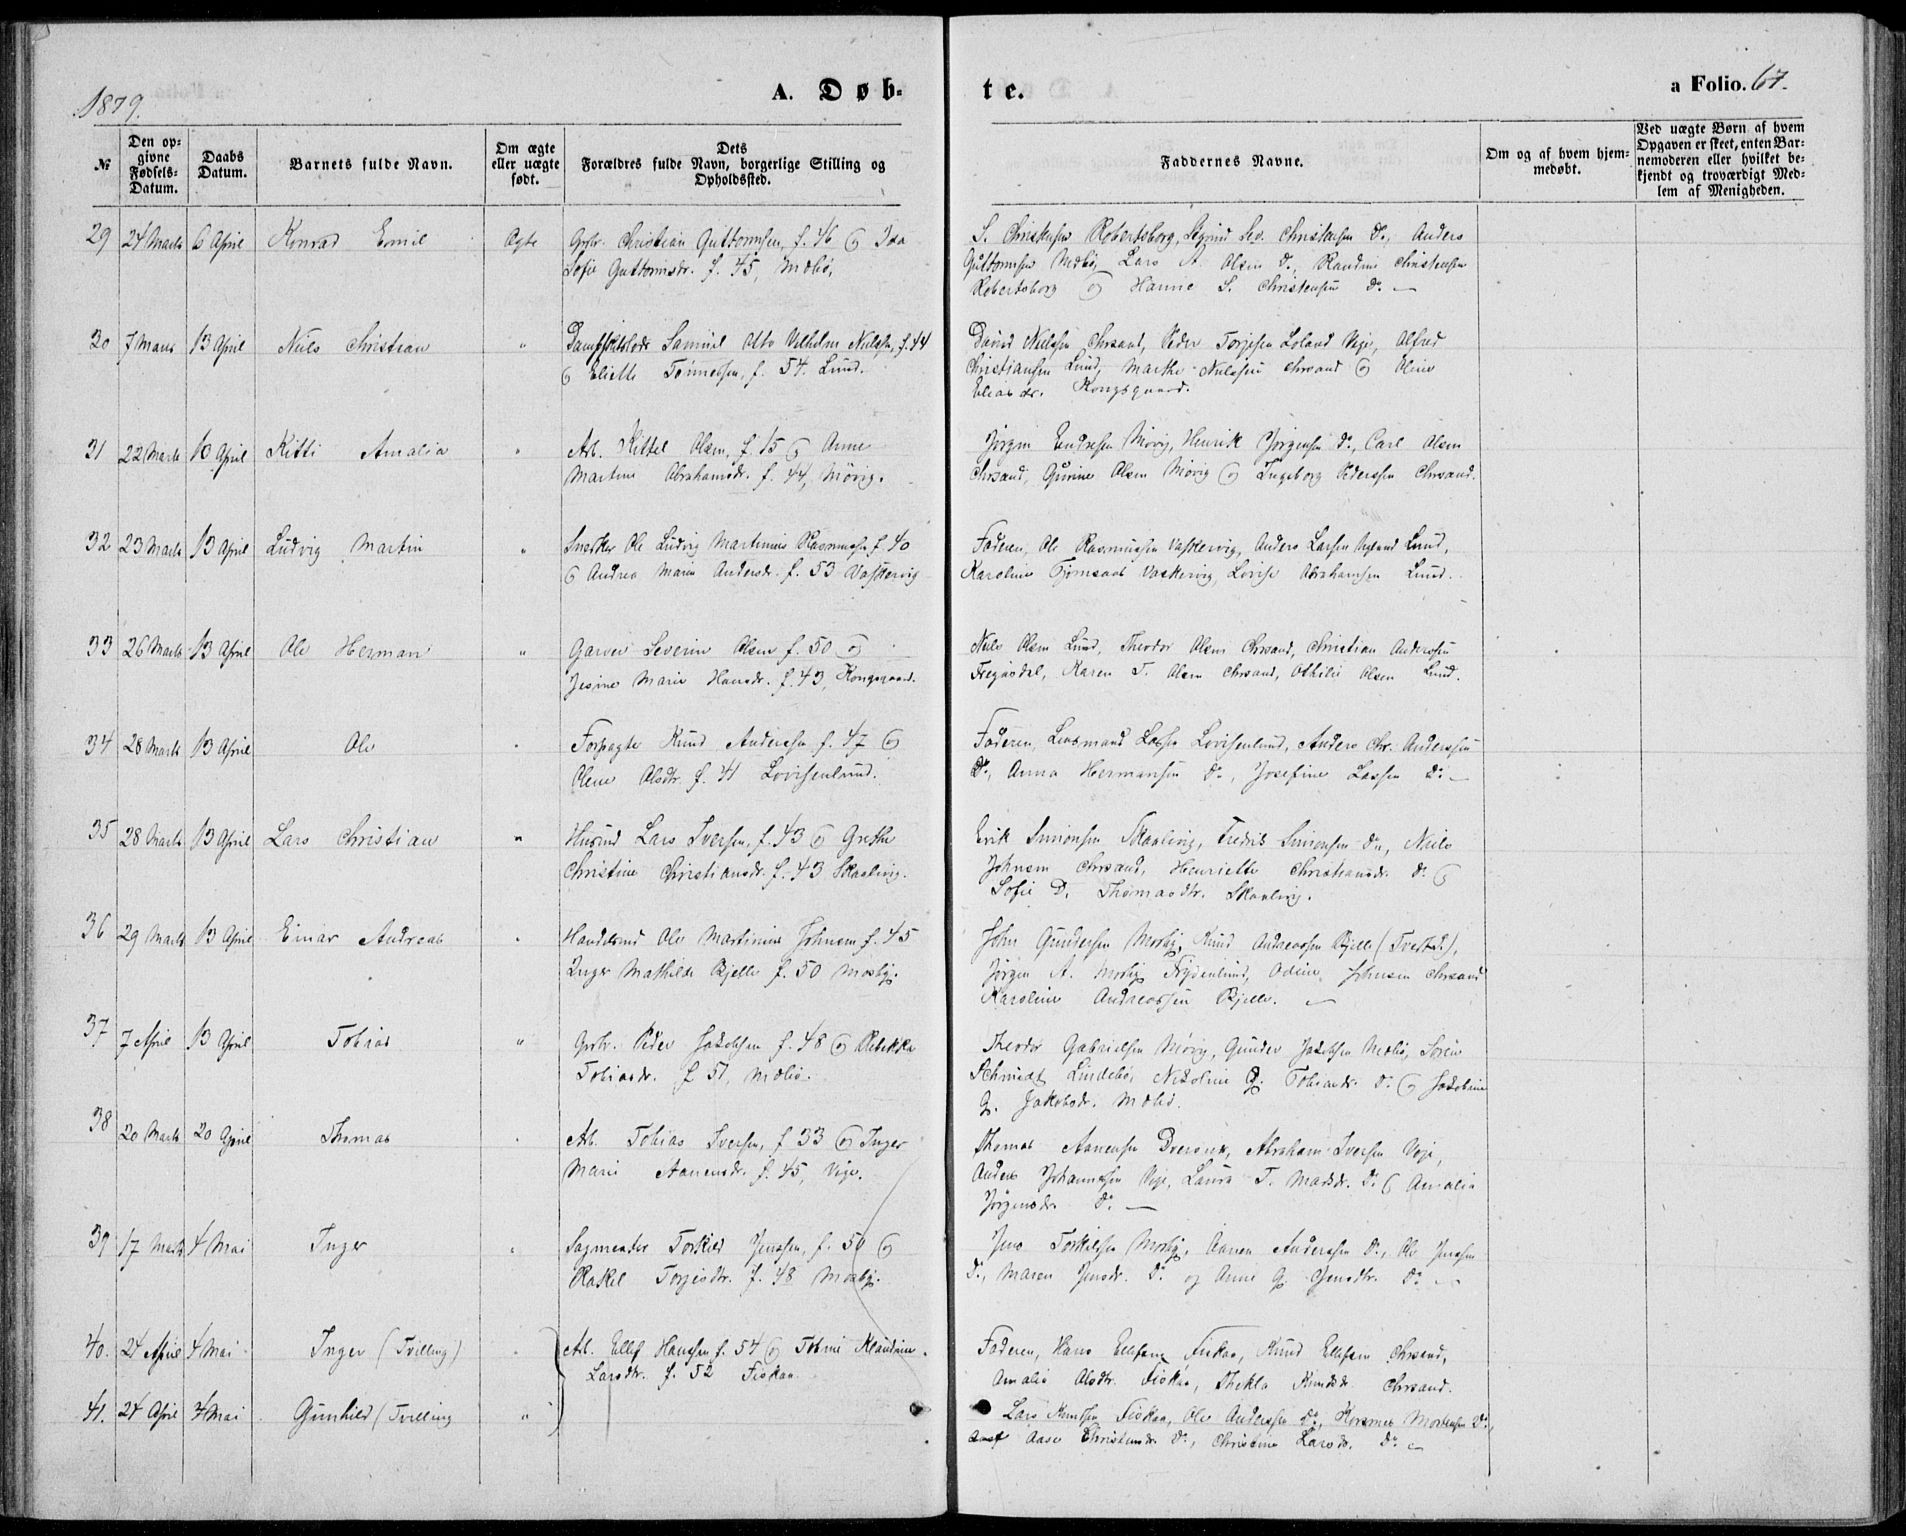 1879.
A. Døb-
te.
a Folio. 67.
№
Den op-
givne
Fødsels-
Datum.
Daabs
Datum.
Barnets fulde Navn.
Om ægte
eller uægte
født.
Dets
Forældres fulde Navn, borgerlige Stilling og
Opholdssted.
Faddernes Navne.
Om og af hvem hjem-
medøbt.
Ved uægte Børn af hvem
Opgaven er skeet, enten Bar-
nemoderen eller hvilket be-
kjendt og troværdigt Med-
lem af Menigheden.
29 24 Marts 6 April Konrad Emil Ægte Grbr. Christian Guttormsen, f. 46 og Ida
Sofie Guttormsdr. f. 45, Mæbø,
S. Christensen Robertsborg, Sigrid Christensen Do, Anders
Guttormsen Mæbø, Lars A. Olsen Do, Randine Christensen
Robertsborg og Hanne S. Christensen Do. —
30 7 Marts 13 April Niels Christian " Samuel Otto Vilhelm Nielsen, f. 44
og Eliette Tønnessen, f. 54. Lund.
David Nielsen Chrsand, Peder Torjesen Loland Vige, Alfred
Christiansen Lund, Marthe Nielsen Chrsand og Oline
Eliasdr. Kongsgaard.
31 22 Marts 10 April Kitti Amalia " Arb. Kittel Olsen, f. 15 og Anne
Martine Abrahamsdr. f. 44, Møvig.
Jørgen Endresen Møvig, Henrik Jørgensen Do, Carl Olsen
Chrsand, Gurine Olsen Møvig og Ingeborg Pedersen Chrsand.
32 23 Marts 13 April Ludvig Martin " Snedker Ole Ludvig Martinius Rasmussen f. 40
og Andrea Marie Andersdr. f. 53 Vaskervig
Faderen, Ole Rasmussen Vaskervig, Anders Larsen Lund,
Karoline Tjomsaas Vaskervig, Lovise Abrahamsen Lund.
33 26 Marts 13 April Ole Herman " Garver Severin Olsen f. 50 og
Jesine Marie Hansdr. f. 43, Kongsgaard.
Niels Olsen Lund, Theodor Olsen Chrsand, Christian Andersen
Karen T. Olsen Chrsand, Othilie Olsen Lund.
34 28 Marts 13 April Ole " Forpagter Knud Andersen f. 47 og
Olene Olsdtr. f. 41 Lovisenlund.
Faderen, Lensmand Lassen Lovisenlund, Anders Chr. Anderssen
Do, Anna Hermansen Do, Josefine Lassen Do —
35 28 Marts 13 April Lars Christian " Husmd Lars Iversen, f. 43 og Grethe
Christine Christiansdr. f. 43 Skaalevig.
Erik Simonsen Skaalevig, Fredrik Simonsen Do, Niels
Johnsen Chrsand, Henriette Christiansdr. Do og
Sofie D. Thomasdtr. Skaalevig.
36 29 Marts 13 April Einar Andreas " Handelsmd Ole Martinius Johnsen f. 45
Inger Mathilde Bjelle f. 50 Mosby.
John Gundersen Mosby, Knud Andreassen Bjelle (Tvert.),
Jørgen A. Mosby Frydenlund, Odine Johnsen Chrsand
Karoline Andreassen Bjelle. —
37 7 April 13 April Tobias " Grbr. Peder Jakobsen f. 48 og Rebekka
Tobiasdr. f. 51, Mæbø.
Theodor Gabrielsen Møvig, Gunder Jakobsen Mæbø, Søren
Schmidt Lindebø, Nikoline G. Tobiasdr. Do og Jakobine
G. Jakobsdr. Mæbø.
38 20 Marts 20 April Thomas " Arb. Tobias Iversen, f 33 og Inger
Marie Aanensdr. f. 45, Vige.
Thomas Aanensen, Abraham Iversen Vige,
Anders Johannesen Vige, Laura T. Madsdr. Do og Amalia
Jørgensdr Do —
39 17 Marts 4 Mai Inger " Sagmester Torkild Jenssen, f. 50 og
Rakel Torjesdtr. f. 48 Mosby.
Jens Torkilsen Mosby, Aanen Anderssen Do, Ole Jenssen
Do, Maren Jensdr. Do og Anne G. Jensdtr. Do —
40. 24 April 4 Mai Inger (Tvilling) " Arb. Ellef Hanssen f. 54 og Tobine Klaudine
Larsdtr. f. 52 Fiskaa.
Faderen, Hans Ellefsen Fiskaa, Knud Ellefsen Chrsand,
Amalie Olsdtr. Fiskaa, Thekla Knudsdr Chrsand.
41. 24 April 4 Mai Gunhild (Tvilling "
Lars Knudsen Fiskaa, Ole Anderssen Do, Mortensen Do,
Aase Christensdr. Do, Christine Larsdr. Do —